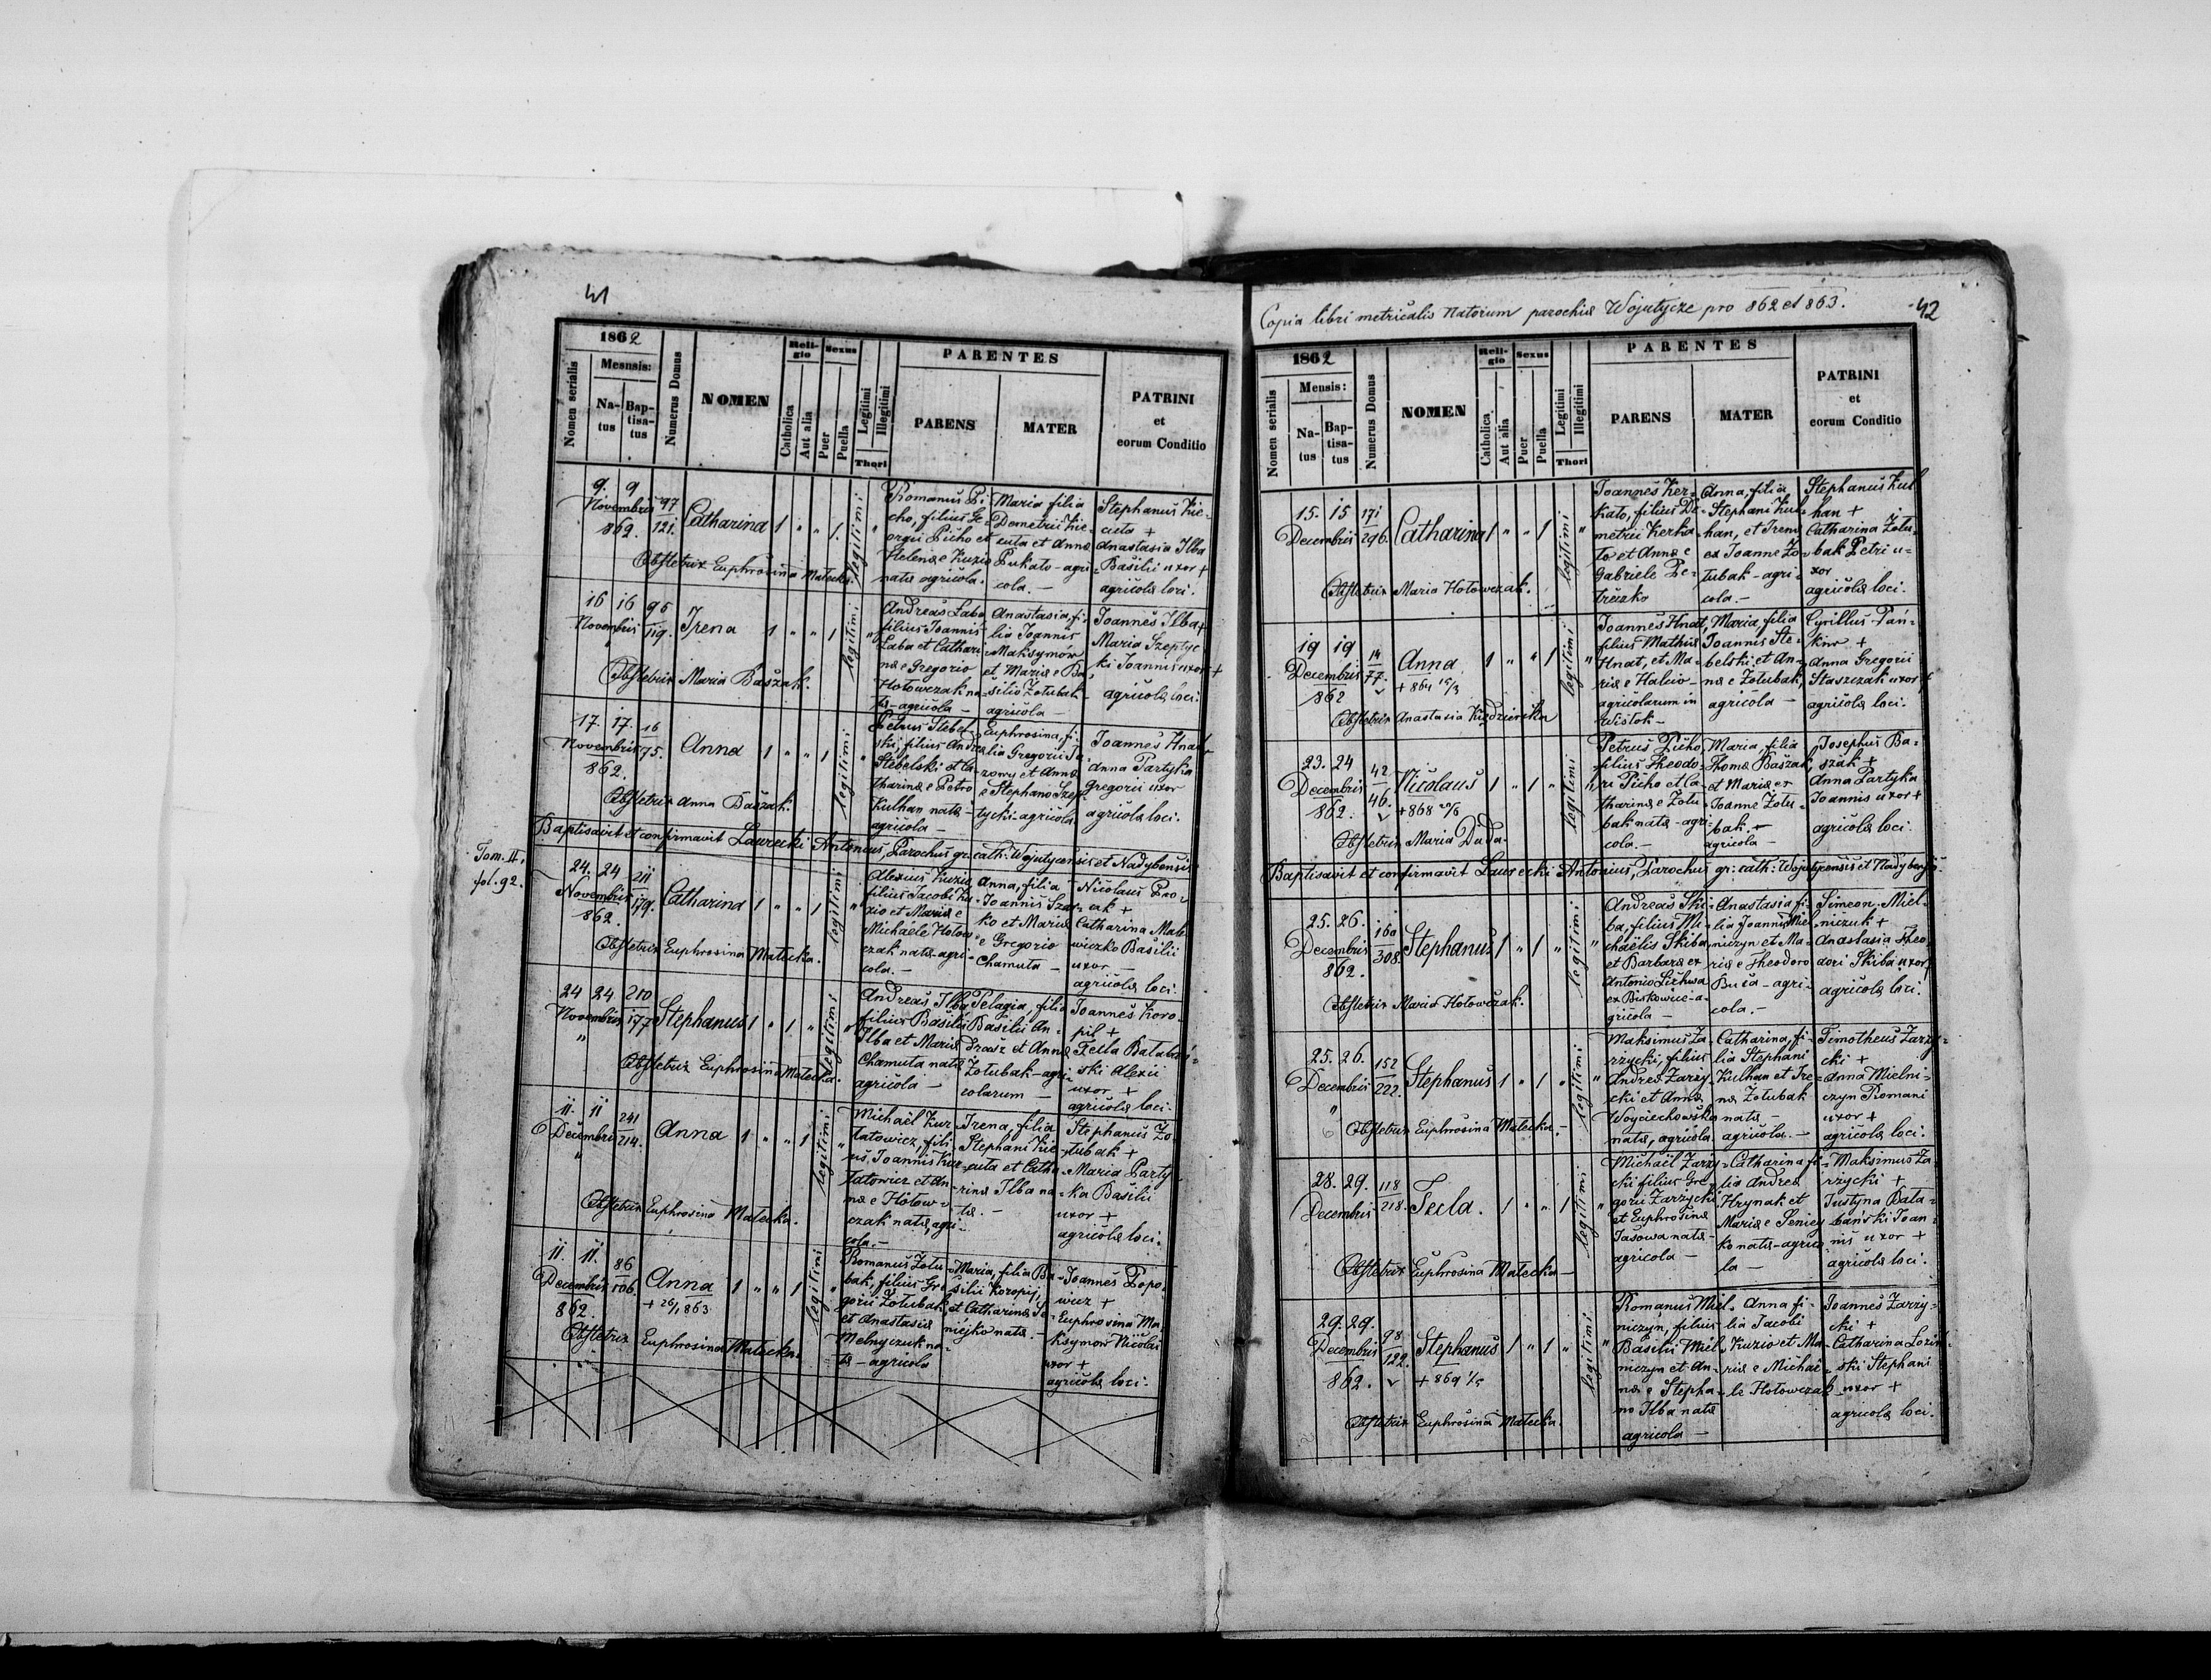 41
1862
Nomen serialis
Mesnsis:
Na-
tus
Bap-
tisa-
tus
Numerus Domus
NOMEN
Reli-
gio
Catholica
Aut alia
Sexus
Puer
Puella
Legitimi
Illegitimi
Thori
PARENTES
PARENS
MATER
PATRINI
et
eorum Conditio
9. 9
Novembris
862.
97
121.
Catharina
1 " " 1.
legitimi "
Romanus Pi-
cho, filius Ge-
orgii Picho et
Helenæ e Kuzio
natæ agricola.
Maria filia
Demetrii Kie-
cuta et Annæ
Pukato - agri-
cola. -
Stephanus Kie-
cuta +
Anastasia Ilba
Basilii uxor +
agricolæ loci.
Obstetrix Euphrosina Matecka.
16 16
Novembris
96
119.
Irena
1 " " 1
legitimi "
Andreas Laba
filius Joannis
Laba et Cathari-
næ e Gregorio
Hotowczak na-
tæ - agricola -
Anastasia, fi-
lia Joannis
Maksymów
et Mariæ e Ba-
silio Zotubak
agricola -
Joannes Ilba +
Maria Szeptyc
ki Joannis uxor +
agricolæ loci.
Obstetrix Maria Baszak.
17. 17.
Novembris
862.
16
75.
Anna
1 " " 1
legitimi "
Petrus Stebel-
ski, filius Andreæ
Stebelski et Ca-
tharinæ e Petro
Kulhan natæ -
agricola -
Euphrosina, fi-
lia Gregorii Ja-
zowy et Annæ
e Stephano Szep-
tycki - agricola.
Joannes Hnat +
Anna Partyka
Gregorii uxor
agricolæ loci.
Obstetrix Anna Baszak.
Baptisavit et confirmavit Lawrecki Antonius, Parochus gr. cath: Wojutycensis et Nadybensis
Tom. II.
fol. 92.
24. 24
Novembris
862.
211
179.
Catharina
1 " " 1
legitimi "
Alexius Kuzio
filius Jacobi Ku-
zio et Mariæ e
Michaele Hotow-
czak natæ agri-
cola. -
Anna, filia
Joannis Szar-
ko et Mariæ
e Gregorio
Chamuta -
Nicolaus Pro-
cuk +
Catharina Mate
wiczko Basilii
uxor -
agricolæ loci.
Obstetrix Euphrosina Matecka.
24 24
Novembris
"
210
177
Stephanus
1 " 1 "
legitimi "
Andreas Ilba
filius Basilii
Ilba et Mariæ
Chamuta natæ
agricola -
Pelagia, filia
Basilii An-
drasz et Annæ
Zotubak - agri-
colarum -
Joannes Koro-
pil +
Tecla Batabań-
ski Alexii
uxor +
agricolæ loci.
Obstetrix Euphrosina Matecka.
11. 11
Decembris
"
241
214.
Anna
1 " " 1
legitimi "
Michaël Kur-
tatowicz, fili-
us Joannis Kur-
tatowicz et An-
næ e Hotow-
czak natæ, agri-
cola. -
Irena, filia
Stephani Kie-
cuta et Catha-
rinæ Ilba na-
tæ. -
Stephanus Zo-
tubak +
Maria Party-
ka Basilii
uxor +
agricolæ loci.
Obstetrix Euphrosina Matecka.
11. 11.
Decembris
862.
86
106.
Anna
+ 26/1 863
1 " " 1
legitimi "
Romanus Zotu-
bak, filius Gre-
gorii Zotubak
et Anastasiæ
Melnyczuk na-
tæ - agricola
Maria, filia Ba-
silii Koropij,
et Catharinæ Se-
niejko natæ. -
Joannes Popo-
wicz +
Euphrosina Ma-
ksymow Nicolai
uxor +
agricolæ loci.
Obstetrix Euphrosina Matecka.
Copia libri metricalis Natorum parochiæ Wojutycze pro 862 et 863.
42
1862
Nomen serialis
Mensis:
Na-
tus
Bap-
tisa-
tus
Numerus Domus
NOMEN
Reli-
gio
Catholica
Aut alia
Sexus
Puer
Puella
Legitimi
Illegitimi
Thori
PARENTES
PARENS
MATER
PATRINI
et
eorum Conditio
15. 15
Decembris
171
296.
Catharina
1 " " 1
legitimi "
Joannes Ker-
kato, filius De-
metrii Kerka-
to et Annæ e
Gabriele Pe-
treczko
Anna, filia
Stephani Kul-
han, et Irenæ
ex Joanne Zo-
tubak - agri-
cola. -
Stephanus Kul
han +
Catharina Zotu-
bak Petri u-
xor
agricolæ loci.
Obstetrix Maria Hotowczak.
19 19
Decembris
862
14
77.
Anna
+ 864 15/3
1 " " 1
legitimi "
Joannes Hnat,
filius Mathiæ
Hnat, et Ma-
riæ e Halcio-
agricolarum in
Wistok -
Maria, filia
Joannis Ste-
belski et An-
næ e Zotubak,
agricola -
Cyrillus Pań-
kiw +
Anna Gregorii
Staszczak uxor +
agricolæ loci.
Obstetrix Anastasia Kiędzierska
23. 24
Decembris
862.
42
46.
Nicolaus
+ 868 20/6
1 " 1 "
legitimi "
Petrus Picho,
filius Theodo-
ri Picho et Ca-
tharinæ e Zotu-
bak natæ - agri-
cola. -
Maria, filia
Thomæ Baszak
et Mariæ ex
Joanne Zotu-
bak. -
agricola -
Josephus Ba-
szak +
Anna Partyka
Joannis uxor +
agricolæ loci.
Obstetrix Maria Duda -
Baptisavit et confirmavit Lawrecki Antonius, Parochus gr: cath: Wojutycensis et Nadybensis.
25. 26.
Decembris
862.
160
308.
Stephanus
1 " 1 "
legitimi "
Andreas Ski-
ba, filius Mi-
chaëlis Skiba
et Barbaræ ex
Antonio Lichwa
ex Biskowice - a-
gricola -
Anastasia fi-
lia Joannis Miel-
niczyn et Ma-
riæ e Theodoro
Busa - agri-
cola. -
Simeon Miel-
niczuk +
Anastasia Theo-
dori Skiba uxor +
agricolæ loci.
Obstetrix Maria Hotowczak.
25. 26.
Decembris
"
152
222.
Stephanus
1 " 1 "
legitimi "
Maksimus Za-
rzycki, filius
Andreæ Zarzy-
cki et Annæ
Woyciechowska
natæ, agricola.
Catharina, fi-
lia Stephani
Kulhan et Ire-
næ Zotubak
natæ -
agricola. -
Timotheus Zarzy-
cki +
Anna Mielni-
czyn Romani
uxor +
agricolæ loci.
Obstetrix Euphrosina Matecka. -
28. 29.
Decembris
118
218.
Tecla.
1 " " 1
legitimi "
Michaël Zarzy-
cki filius Gre-
gorii Zarzycki
et Euphrosinæ
Jasowa natæ -
agricola -
Catharina fi-
lia Andreæ
Hrynak et
Mariæ e Seniey-
ko natæ - agrico-
la -
Maksimus Za-
rzycki +
Justyna Bata-
bański Joan-
nis uxor +
agricolæ loci.
Obstetrix Euphrosina Matecka -
29. 29.
Decembris
862.
98
122.
Stephanus
+ 869 1/5
1 " 1 "
legitimi "
Romanus Miel-
niczyn, filius
Basilii Miel-
niczyn et An-
næ e Stepha-
no Ilba natæ
agricola -
Anna fi-
lia Jacobi
Kuzio et Ma-
riæ e Michaë-
le Hotowczak
Joannes Zarzy-
cki +
Catharina Łoziń-
ski Stephani
uxor +
agricolæ loci.
Obstetrix Euphrosina Matecka.